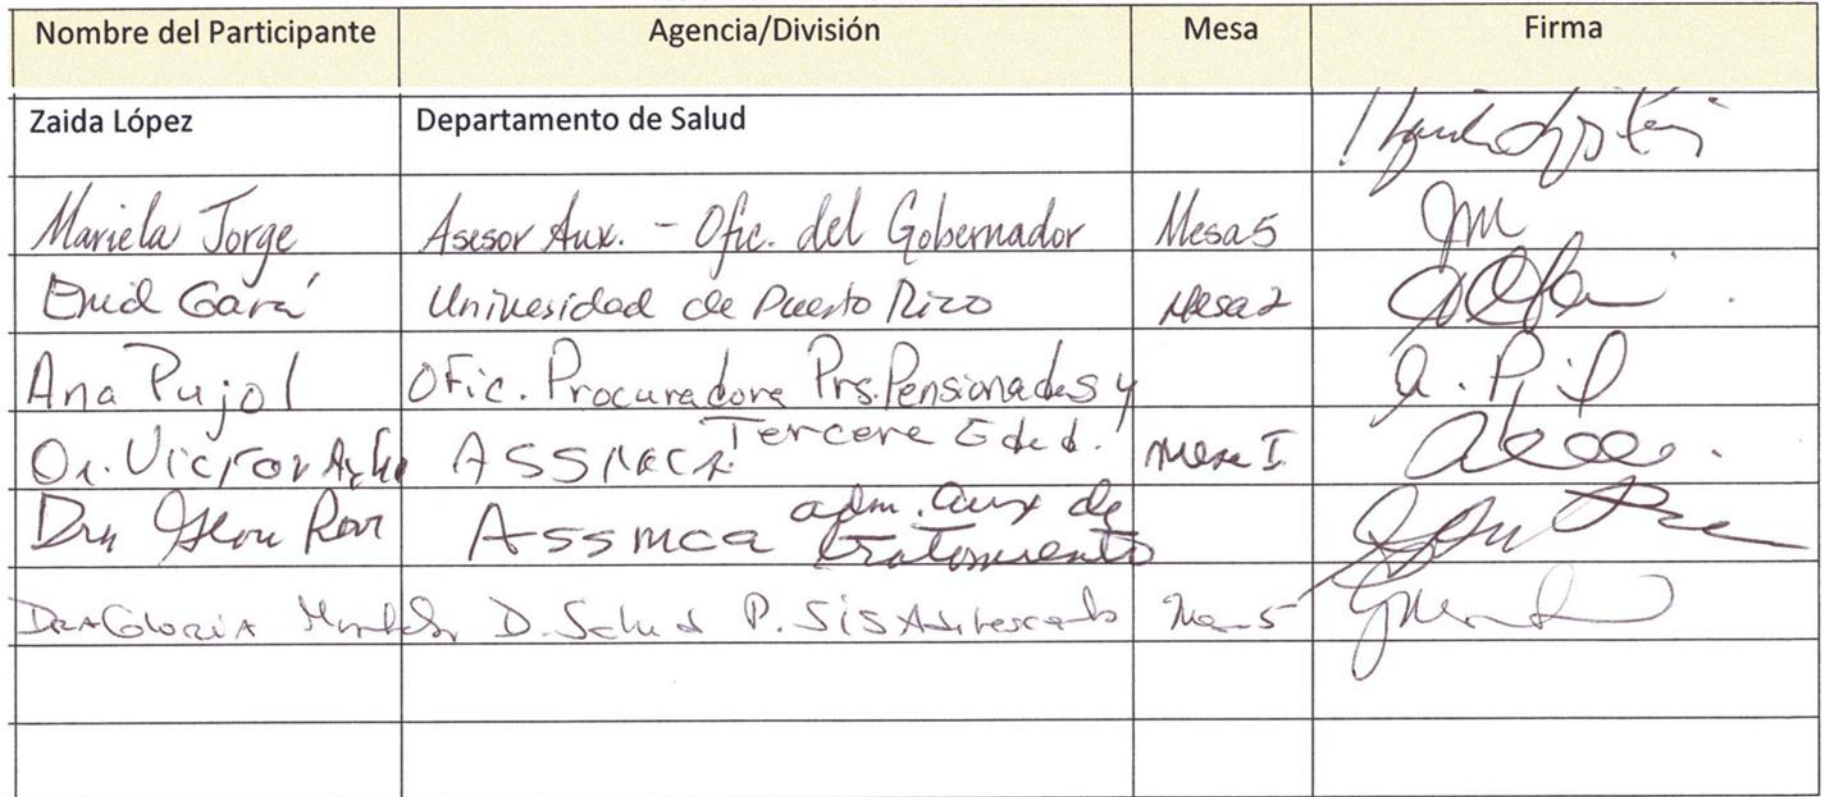 Nombre del Participante Agencia/División Mesa Firma
Zaida López Departamento de Salud
Mariela Jorge Asesor Aux. - Ofic. del Gobernador Mesa 5 JM
Enid Universidad de Puerto Rico Mesa 2
Ana Pujol Ofic. Procuradora Prs. Pensionadas y
Tercera Edad.
Dr. Victor ASSMCA Mesa I
adm. aux de
Dra ASSMCA tratamiento
Dra Gloria D. Salud P. SIS Mesa 5